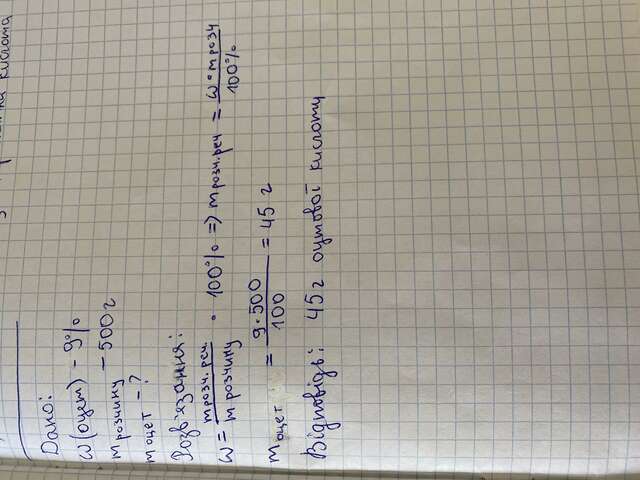 на кислота
Дано:
ω(оцет) - 9%
m розчину - 500г
m оцет - ?
Розв'язання:
ω = m розч. реч. / m розчину · 100% => m розч. реч = ω · m розч / 100%
m оцет = 9·500 / 100 = 45 г
Відповідь: 45г оцтової кислоти